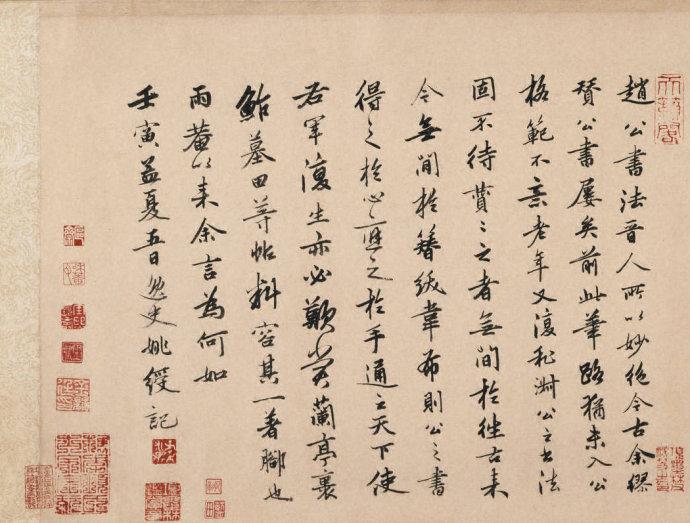 趙公書法晉人所以妙絶今古余繆
賛公書屢矣前此華路猶未入公
格範不老年又復私淑公之法
固不待賛賛之者無間於往古来
今無間於簪紱韋布則公之書
得之於心應之於手通之天下使
右軍復生亦必歎賞蘭亭裹
鮓墓田等帖料容其一著脚也
雨菴以来余言為何如
壬寅孟夏五日逸史姚綬記